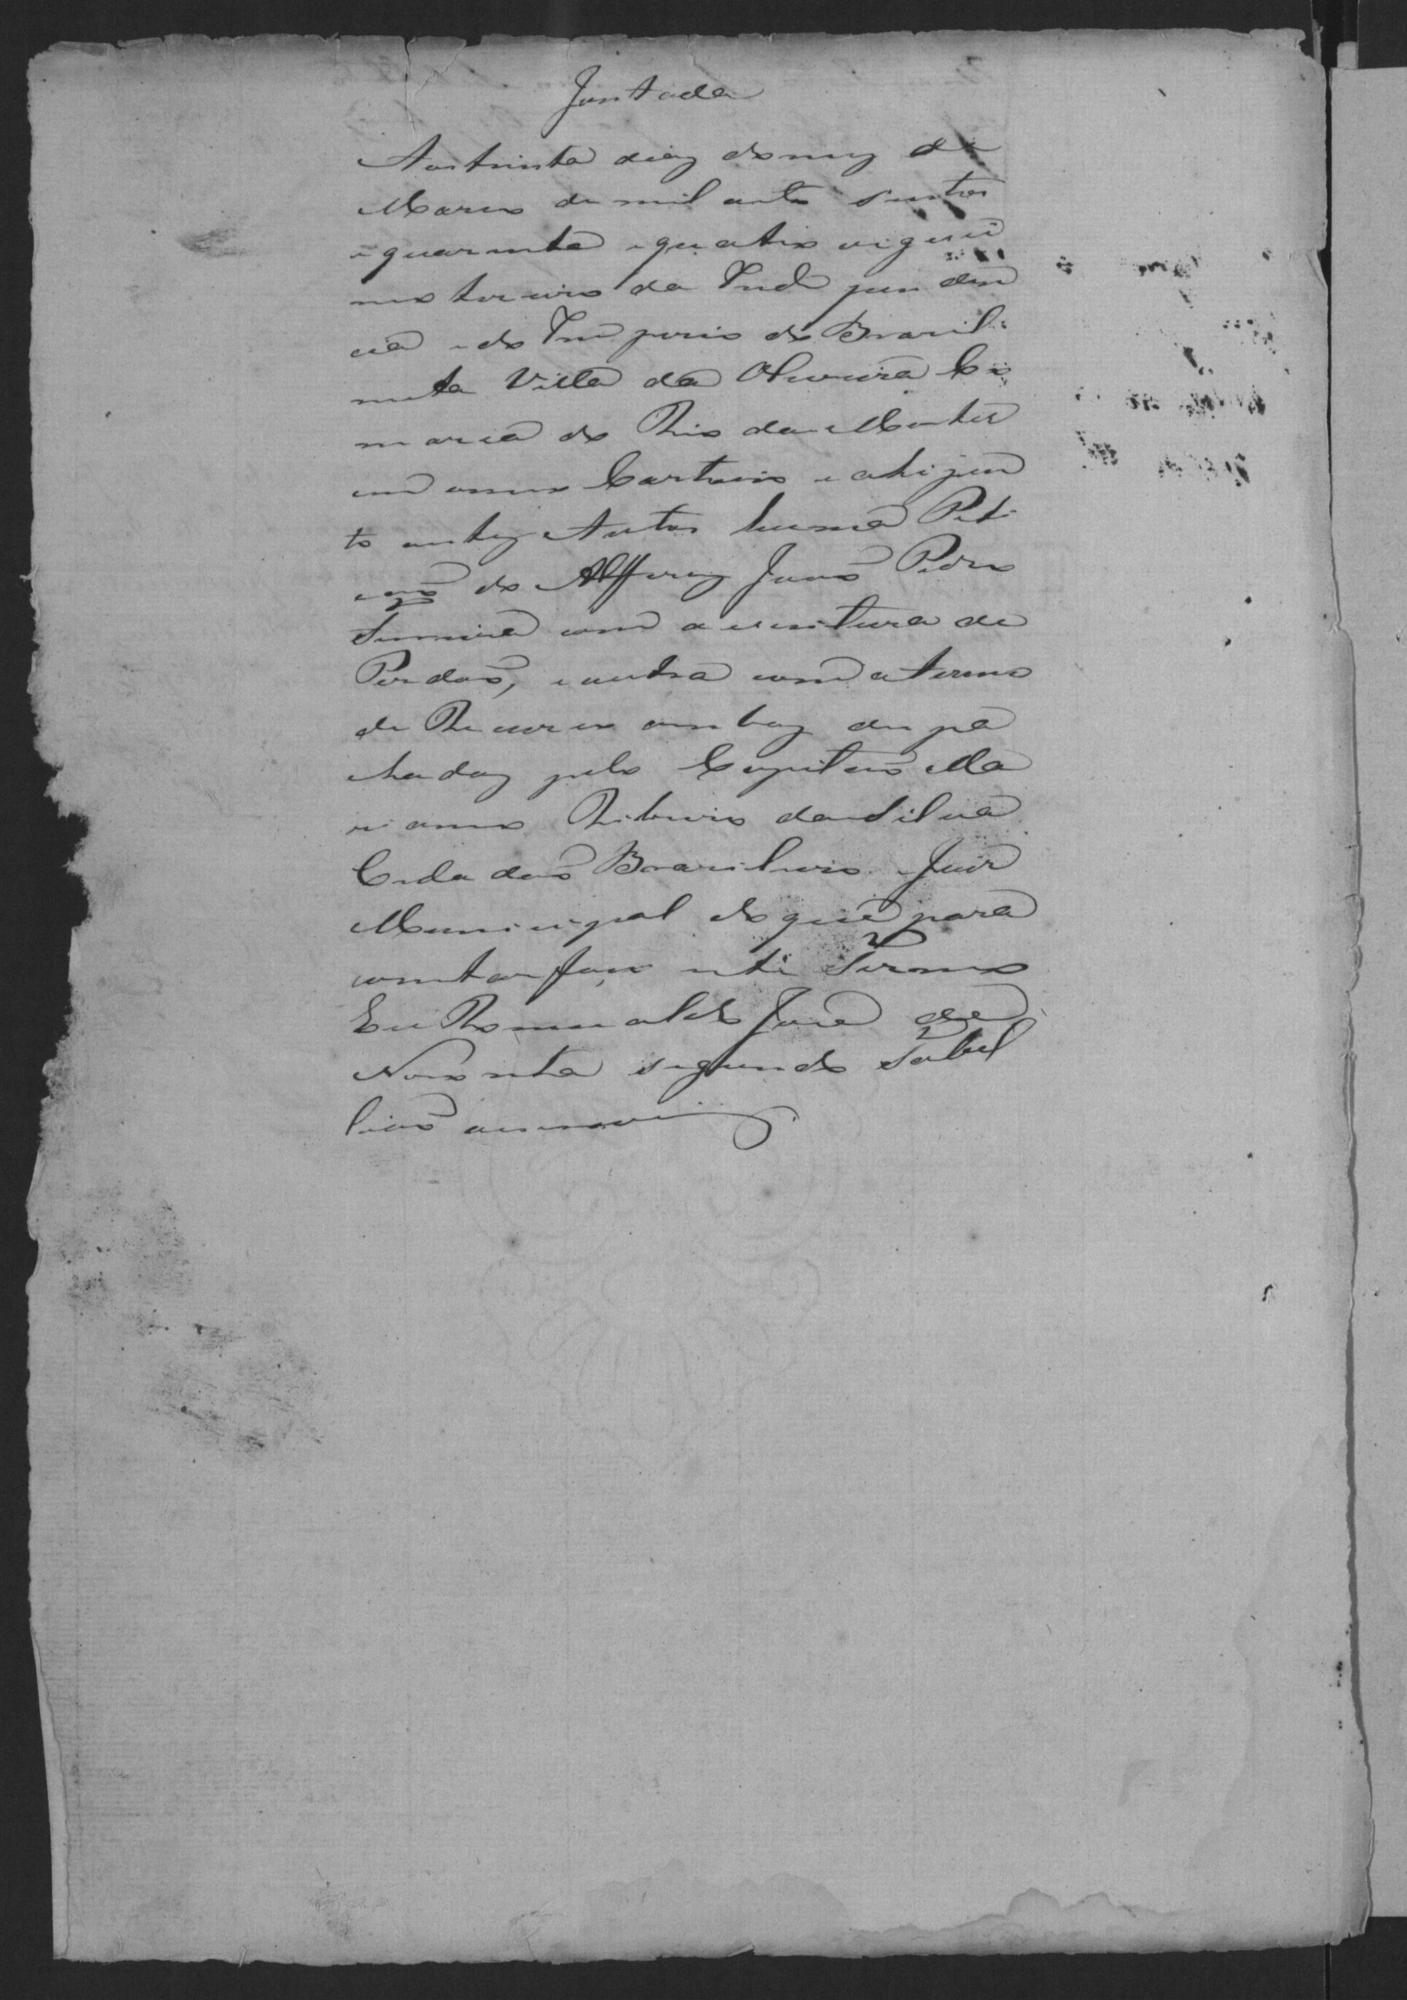 Juntada
Aos trinta dias do mez de
Março de mil oito sentos
e quarenta e quatro vigeci
mo terceiro da Inde pen den
cia e do Im perio do Brazil
nesta Villa da Oliveira Co
marca do Rio das Mortes
em o meo Cartorio e ahi jun
to a estes Autos huma Peti
ção do Alfferes João Pedro
Ferreira com a escritura de
Perdão, e outra com o termo
de Recurso ambas des pa
chadas pelo Capitão Ma
rianno Ribeiro da Silva
Cidadão Brazileiro Juiz
Municipal do que para
constar faço este Termo
Eu Romualdo José de
Noronha segundo Tabel
lião escrevi